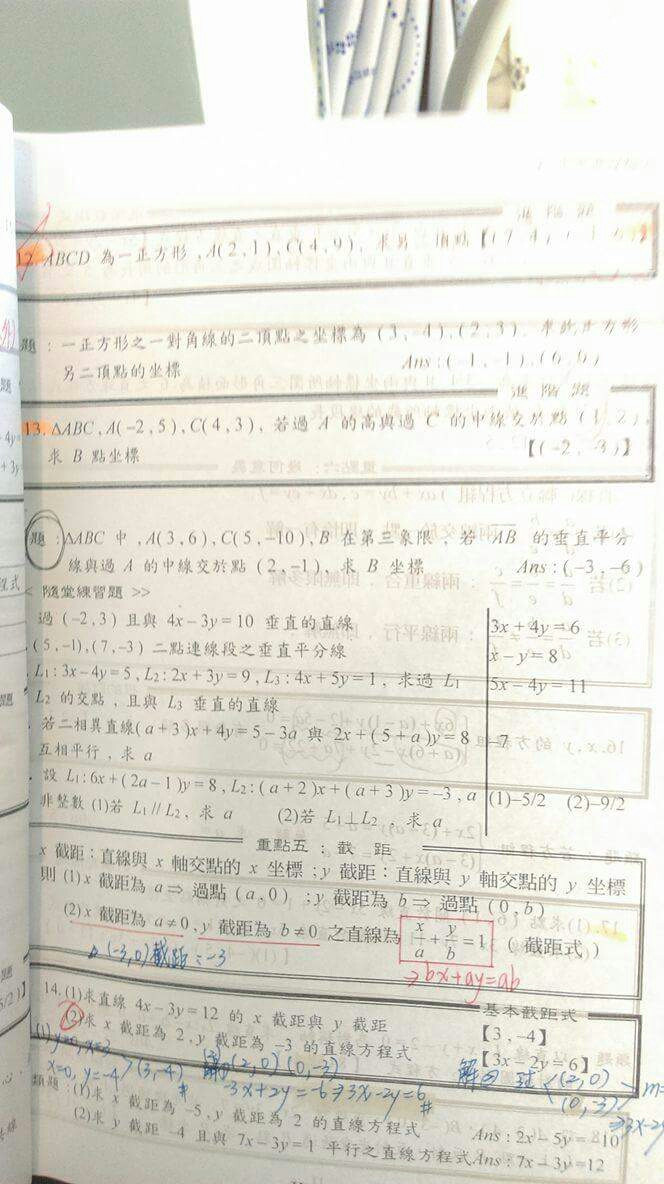 進階題
12. ABCD 為一正方形 , A(2,1), C(4,9), 求另 頂點【(7,4)
題 : 一正方形之一對角線的二頂點之坐標為 (3,-4),(2,3). 求此正方形
另二頂點的坐標 Ans:(-1,-1),(6,0)
進階題
13. ΔABC, A(-2,5), C(4,3), 若過 A 的高與過 C 的中線交於點 (1,2),
求 B 點坐標 【(-2,-3)】
題 : ΔABC 中 , A(3,6), C(5,-10), B 在第三象限 , 若 AB 的垂直平分
線與過 A 的中線交於點 (2,-1), 求 B 坐標 Ans:(-3,-6)
< 隨堂練習題 >>
過 (-2,3) 且與 4x-3y=10 垂直的直線 3x+4y=6
(5,-1),(7,-3) 二點連線段之垂直平分線 x-y=8
L₁:3x-4y=5, L₂:2x+3y=9, L₃:4x+5y=1, 求過 L₁ 5x-4y=11
L₂ 的交點 , 且與 L₃ 垂直的直線
若二相異直線(a+3)x+4y=5-3a 與 2x+(5+a)y=8 -7
互相平行 , 求 a
設 L₁:6x+(2a-1)y=8, L₂:(a+2)x+(a+3)y=-3, a (1)-5/2 (2)-9/2
非整數 (1)若 L₁//L₂, 求 a (2)若 L₁⊥L₂ , 求 a
重點五 : 截 距
x 截距：直線與 x 軸交點的 x 坐標 ; y 截距：直線與 y 軸交點的 y 坐標
則 (1)x 截距為 a⇒ 過點 (a,0) ; y 截距為 b⇒ 過點 (0,b)
(2)x 截距為 a≠0, y 截距為 b≠0 之直線為 x/a+y/b=1 ( 截距式 )
(-3,0)截距:-3
⇒bx+ay=ab
基本截距式
14.(1)求直線 4x-3y=12 的 x 截距與 y 截距 【3,-4】
(2)求 x 截距為 2, y 截距為 -3 的直線方程式 【3x-2y=6】
(1) y=0, x=3
x=0, y=-4 >(3,-4)#
(2,0) (0,-3)
-3x+2y=-6⇒3x-2y=6#
(2,0)
(0,-3)
類題 : (1)求 x 截距為 -5, y 截距為 2 的直線方程式 Ans:2x-5y=-10
(2)求 y 截距 -4 且與 7x-3y=1 平行之直線方程式 Ans:7x-3y=12